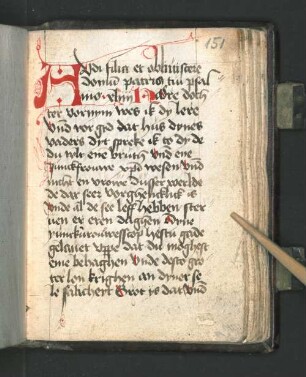 151
Audi filia et obliuiscere
domum patris tui psal
mo xliiij Hore doch
ter vornym wes ik dy lere
vnd vorgid dat hus dynes
vaders dyt spreke ik to dy de
du bist ene bruth vnd ene
Junckfrouwe vpp wesen vnd
nicht en vrowe dusser werlde
de dar seer vorghenklick is
vnde al de see leff hebben ster
uen er eren daghen Alzie
yunckvrouwesscop hestu gade
gelauet vppe dat du moghest
eme behaghen vnde desto gro
ter lon krighen an dyner se
le salicheit Grot is dat vnd